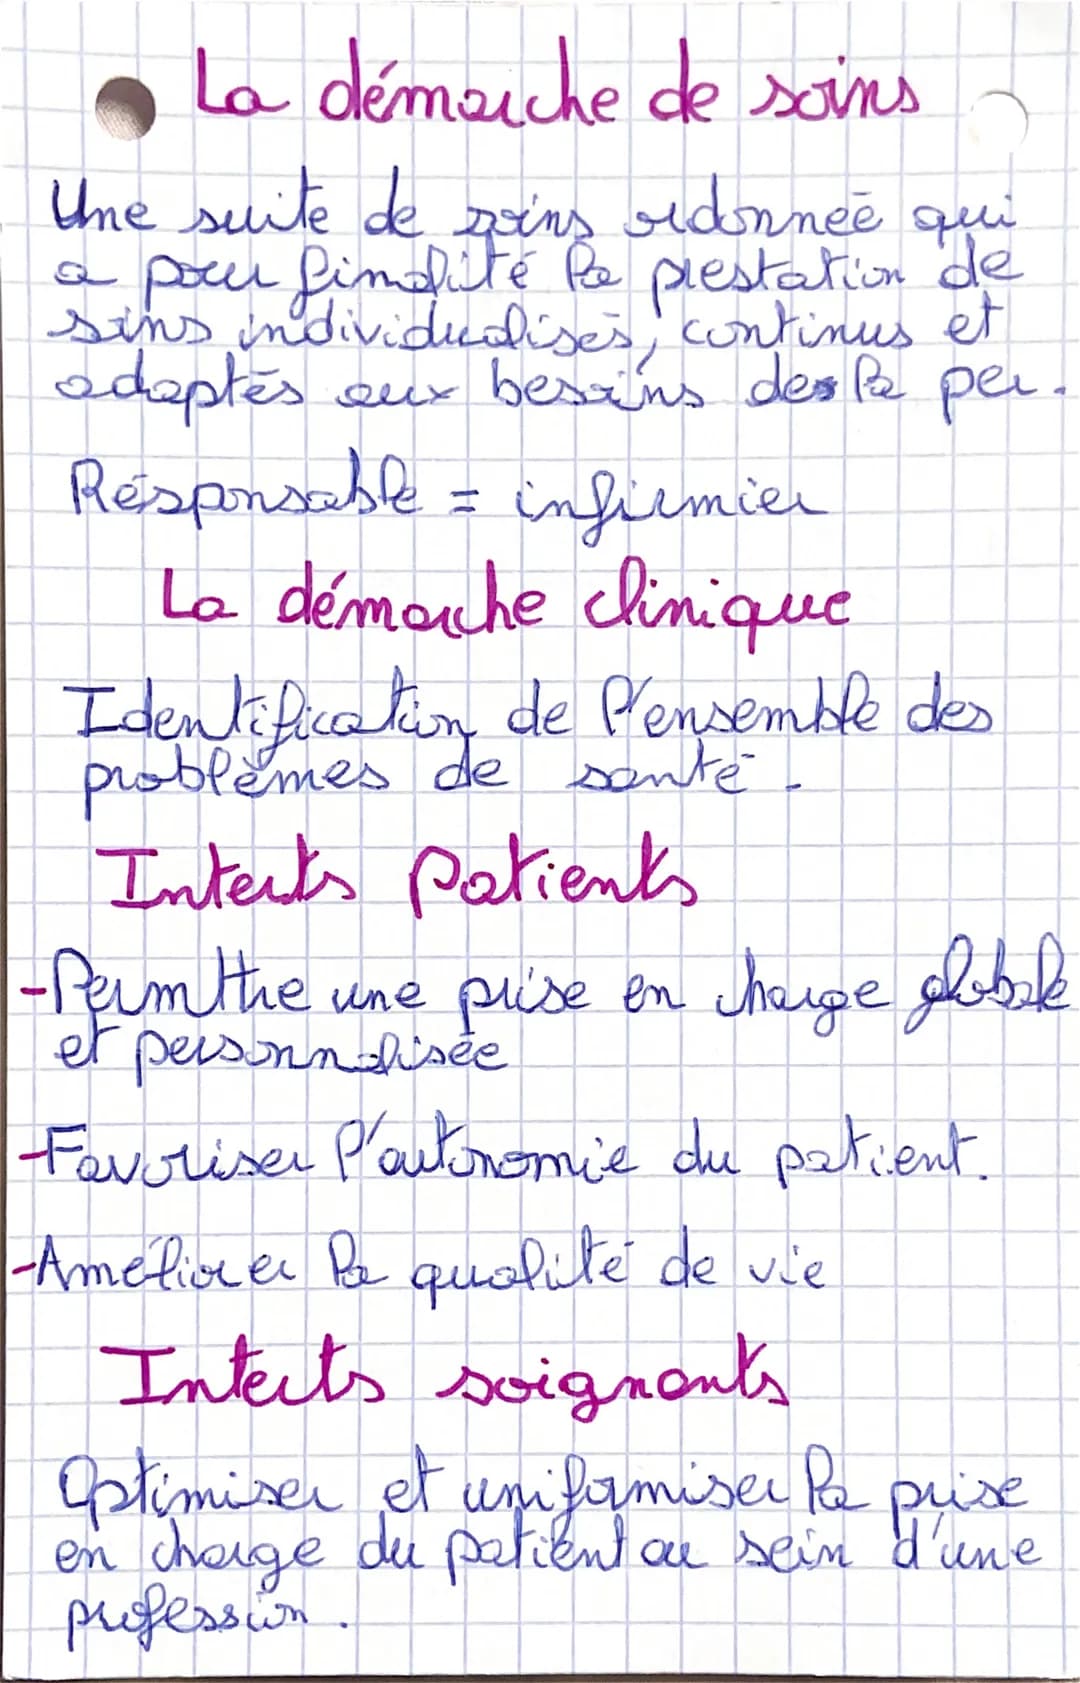 La démarche de soins
Une suite de soins ordonneé qui
a pour finalité la prestation de
soins individualisés, continus et
adaptés aux besoins des la per.
Résponsable = infirmier
La démarche clinique
Identification de l'ensemble des
problèmes de santé.
Interts patients
-Permttre une prise en charge globale
et personnalisée
-Favoriser l'autonomie du patient.
-Améliorer la qualité de vie
Interts soignants
Optimiser et uniformiser la prise
en charge du patient au sein d'une
profession.